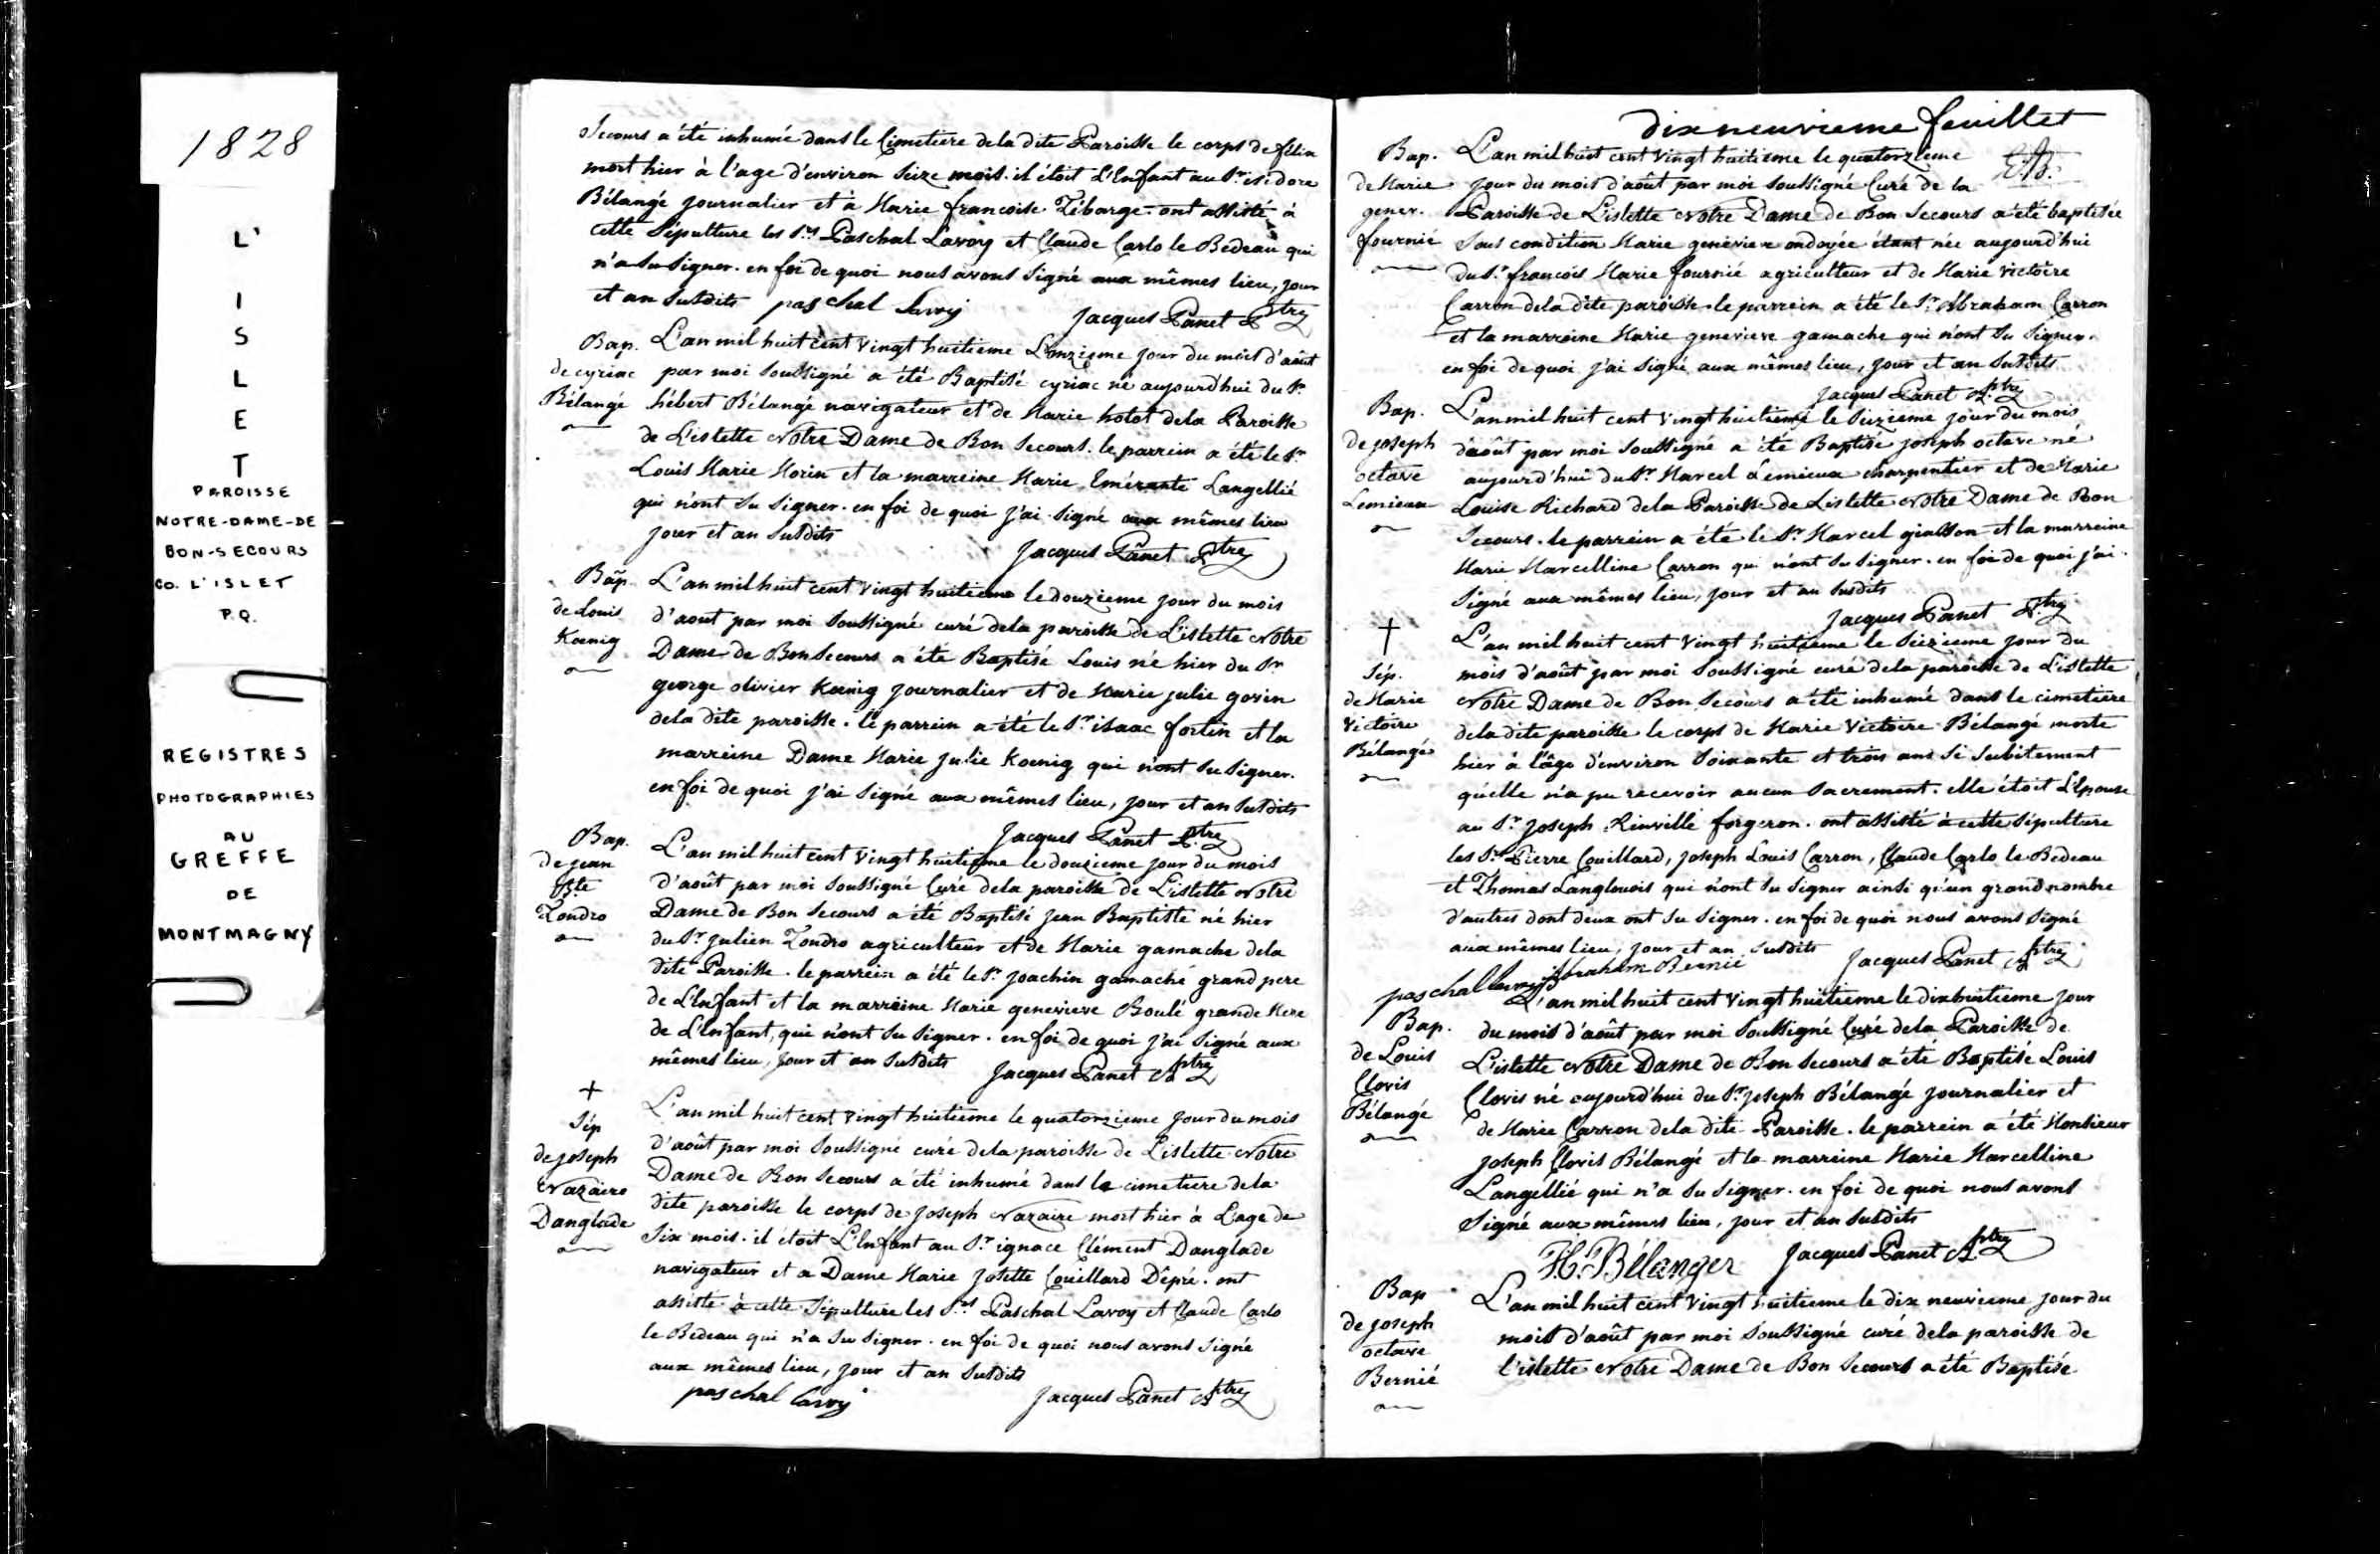 1828
L'
I
S
L
E
T
PAROISSE
NOTRE-DAME-DE
BON-SECOURS
CO. L'ISLET
P.Q.
REGISTRES
PHOTOGRAPHIES
AU
GREFFE
DE
MONTMAGNY
Secours a été inhumé dans le Cimetiere dela dite Paroisse le corps de félix
mort hier à l'age d'environ Seize mois. il étoit L'Enfant au Sr. isidore
Bélangé journalier et à Marie francoise Tébarge. ont assisté à
cette Sépulture les Srs Paschal Lavoy et Claude Carlo le Bedeau qui
n'a Su Signer. en foi de quoi nous avons Signé aux mêmes lieu, jour
et an Susdits paschal Lavoy Jacques Panet Ptre
Bap.
de cyriac
Bélangé
L'an mil huit cent vingt huitieme L'onzieme jour du mois d'août
par moi Soussigné a été Baptisé cyriac né aujourd'hui du Sr.
hébert Bélangé navigateur et de Marie hotot dela Paroisse
de L'islette Notre Dame de Bon Secours. le parrein a été le Sr.
Louis Marie Morin et la marreine Marie Emérante Langellié
qui n'ont Su Signer. en foi de quoi j'ai Signé aux mêmes lieu
jour et an Susdits
Jacques Panet Ptre
Bap.
de Louis
Kœnig
L'an mil huit cent vingt huitieme le douzieme jour du mois
d'aout par moi Soussigné curé dela paroisse de L'islette Notre
Dame de Bon Secours a été Baptisé Louis né hier du Sr.
george olivier Kœnig journalier et de Marie julie govin
dela dite paroisse. le parrein a été le Sr. isaac fortin et la
marreine Dame Marie julie Kœnig qui n'ont Su Signer.
en foi de quoi j'ai Signé aux mêmes lieu, jour et an Susdits
Jacques Panet Ptre
Bap.
de jean
Bte
Zondro
L'an mil huit cent vingt huitieme le douzieme jour du mois
d'août par moi Soussigné Curé dela paroisse de L'islette Notre
Dame de Bon Secours a été Baptisé jean Baptiste né hier
du Sr. julien Zondro agriculteur et de Marie gamache dela
dite Paroisse. le parrein a été le Sr. joachin gamache grand pere
de L'Enfant et la marreine Marie genevieve Boulé grande Mere
de L'Enfant, qui n'ont Su Signer. en foi de quoi j'ai Signé aux
mêmes lieu, jour et an Susdits Jacques Panet Ptre
Sép
de joseph
Nazaire
Danglade
L'an mil huit cent vingt huitieme le quatorzieme jour du mois
d'août par moi Soussigné curé dela paroisse de L'islette Notre
Dame de Bon Secours a été inhumé dans le cimetiere dela
dite paroisse le corps de joseph Nazaire mort hier à L'age de
Six mois. il étoit L'Enfant au Sr. ignace Clément Danglade
navigateur et a Dame Marie josette Couillard Dépré. ont
assisté à cette Sépulture les Srs Paschal Lavoy et Claude Carlo
le Bedeau qui n'a Su Signer. en foi de quoi nous avons Signé
aux mêmes lieu, jour et an Susdits
paschal Lavoy Jacques Panet Ptre
dix neuvieme feuillet
Bap.
de Marie
genev.
fournié
L'an mil huit cent vingt huitieme le quatorzieme
jour du mois d'août par moi Soussigné Curé de la
Paroisse de L'islette Notre Dame de Bon Secours a été baptisée
Sous condition Marie genevieve ondoyée étant née aujourd'hui
du Sr. francois Marie fournié agriculteur et de Marie victoire
Carron dela dite paroisse. le parrein a été le Sr. Abraham Carron
et la marreine Marie genevieve gamache qui n'ont Su Signer.
en foi de quoi j'ai Signé aux mêmes lieu, jour et an Susdits
Jacques Panet Ptre
Bap.
de joseph
octave
Lemieux
L'an mil huit cent vingt huitieme le Seizieme jour du mois
d'août par moi Soussigné a été Baptisé joseph octave né
aujourd'hui du Sr. Marcel Lemieux charpentier et de Marie
Louise Richard dela Paroisse de L'islette Notre Dame de Bon
Secours. le parrein a été le Sr. Marcel giasson et la marreine
Marie Marcelline Carron qui n'ont Su Signer. en foi de quoi j'ai
Signé aux mêmes lieu, jour et an Susdits
Jacques Panet Ptre
Sép.
de Marie
Victoire
Bélangé
L'an mil huit cent vingt huitieme le Seizieme jour du
mois d'août par moi Soussigné curé dela paroisse de L'islette
Notre Dame de Bon Secours a été inhumé dans le cimetiere
dela dite paroisse le corps de Marie Victoire Bélangé morte
hier à l'âge d'environ Soixante et trois ans Si Subitement
qu'elle n'a pu recevoir aucun Sacrement. elle étoit L'Epouse
au Sr. joseph Rinville forgeron. ont assisté à cette Sépulture
les Srs Pierre Couillard, joseph Louis Carron, Claude Carlo le Bedeau
et Thomas Langlouois qui n'ont Su Signer ainsi qu'un grand nombre
d'autres dont deux ont Su Signer. en foi de quoi nous avons Signé
aux mêmes lieu, jour et an Susdits Jacques Panet Ptre
paschal Lavoy Abraham Bernié
Bap.
de Louis
Clovis
Bélangé
L'an mil huit cent vingt huitieme le dix huitieme jour
du mois d'août par moi Soussigné Curé dela Paroisse de
L'islette Notre Dame de Bon Secours a été Baptisé Louis
Clovis né aujourd'hui du Sr. joseph Bélangé journalier et
de Marie Carron dela dite Paroisse. le parrein a été Monsieur
joseph Clovis Bélangé et la marreine Marie Marcelline
Langellié qui n'a Su Signer. en foi de quoi nous avons
Signé aux mêmes lieu, jour et an Susdits
Bélanger Jacques Panet Ptre
Bap
de joseph
octave
Bernié
L'an mil huit cent vingt huitieme le dix neuvieme jour du
mois d'août par moi Soussigné curé dela paroisse de
l'islette Notre Dame de Bon Secours a été Baptisé